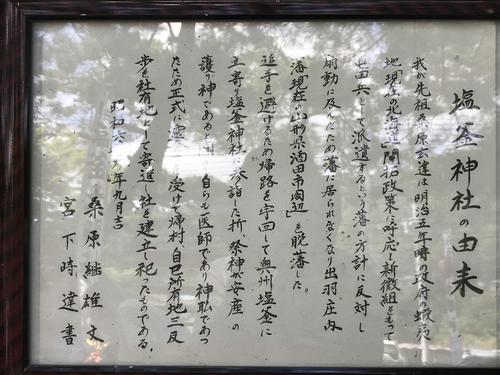 塩釜神社の由来
我が先祖 原玄達は明治五年時の政府の蝦夷
地「現在の北海道」開拓政策に呼応し新徴組をもって
屯田兵として派遣するという藩の方針に反対し
扇動に及んだため藩に居られなくなり出羽庄内
藩「現在の山形県酒田市周辺」を脱藩した。
追手を避けるため帰路を宇回して奥州塩釜に
立寄り塩釜神社に参詣した折、祭神が安産の
護り神である 自らも医師であり神職であっ
たため正式に 受けて帰村、自己所有地三反
歩を社有地として寄進し社を建立し祀ったものである。
昭和六 年九月吉
桑原継雄文
宮下時達書